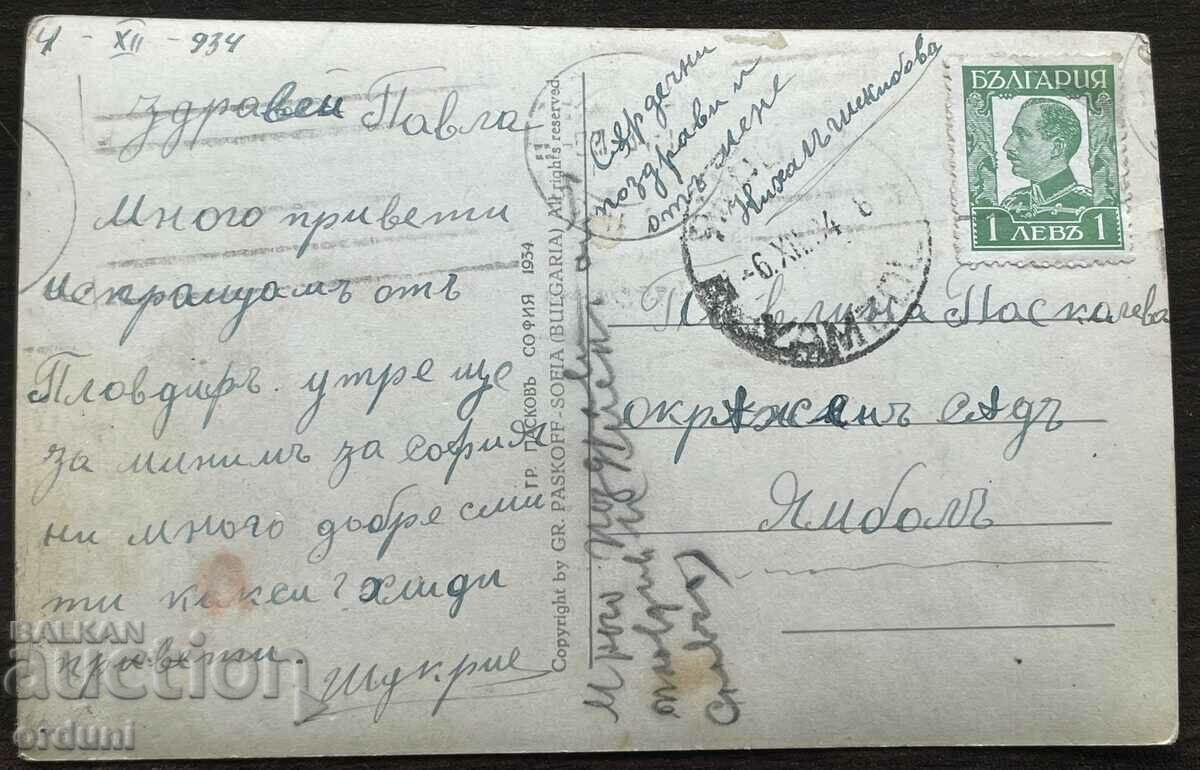 4 - XII - 934
Здравей Павла
Много привети
испращамъ отъ
Пловдифъ. утре ще
за миним за София
ни много добре сми
ти как си? хиляди
привети.
Шукрие
ГР. ПАСКОВЪ СОФИЯ 1934
Copyright by GR. PASKOFF-SOFIA (BULGARIA) All rights reserved.
Много поздрави от
Сърдечни
поздрави и
отъ мене
БЪЛГАРИЯ
1 ЛЕВЪ 1
-6.XII.34 6
Паскалева
окръженъ съдъ
Ямболъ
BALKAN
auction
orduni